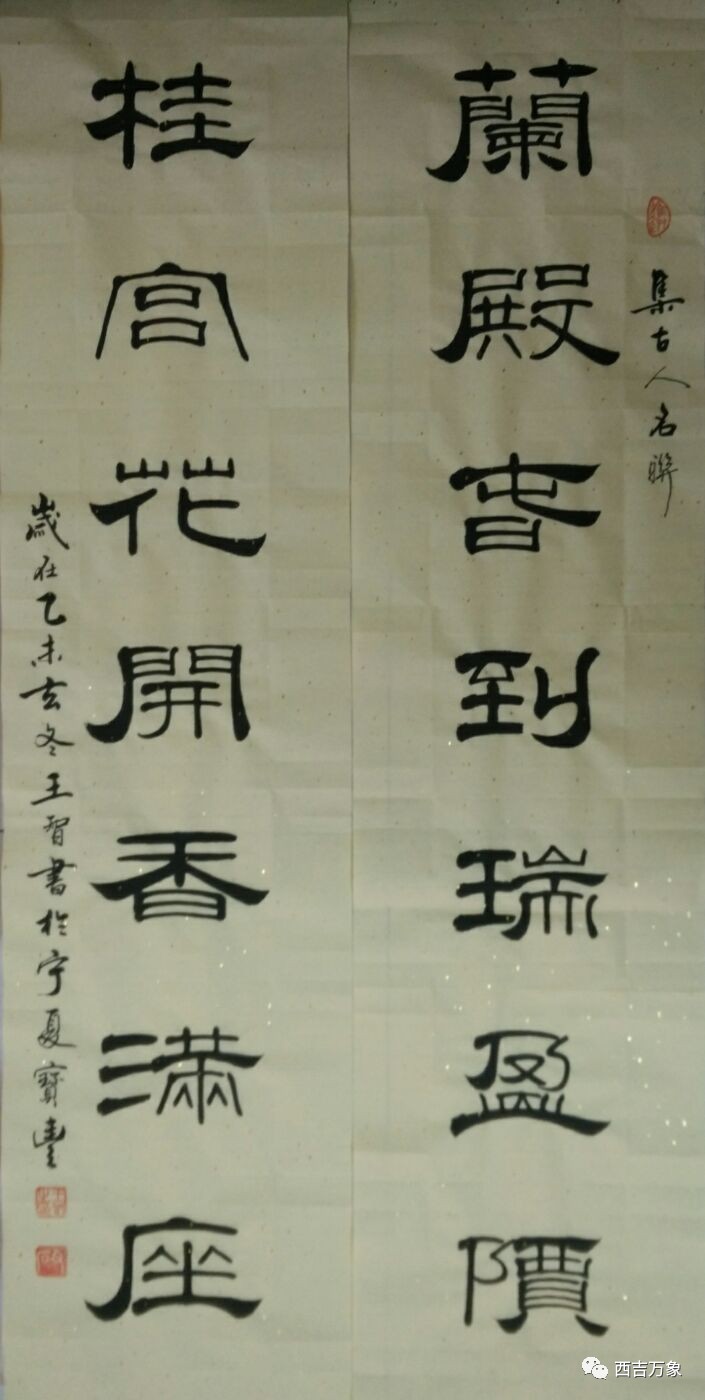 集古人名聯
蘭殿旾到瑞盈
桂宫花開香滿座
歲在乙未玄冬王智書於宁夏寶豐
西吉万象